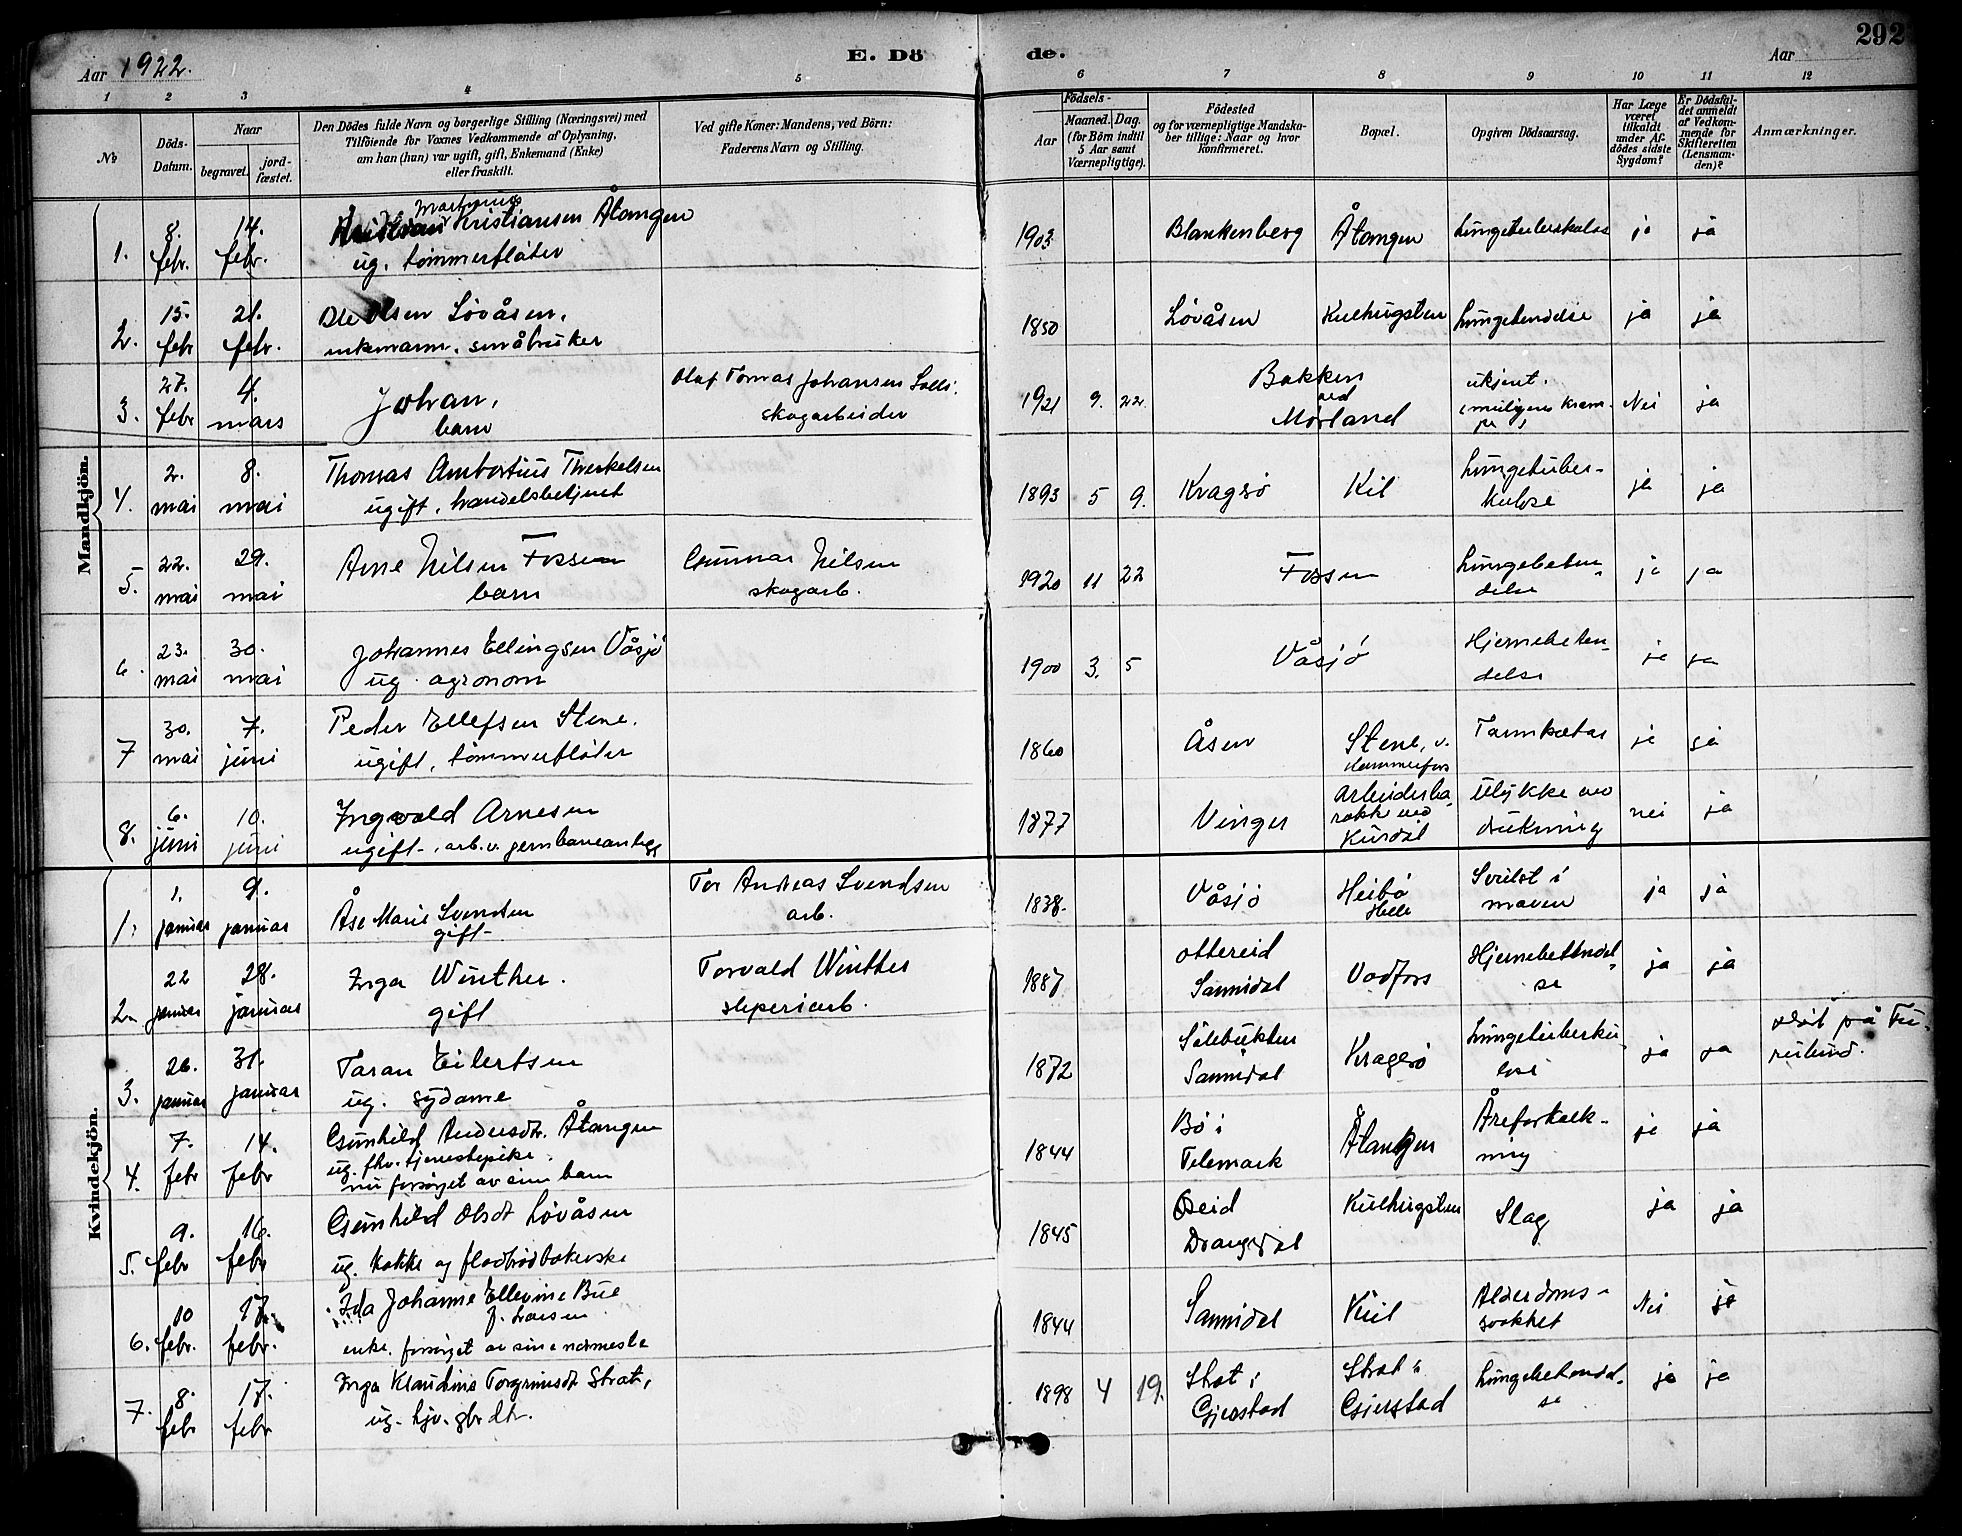 Aar 1922.
E. Dö
de.
Aar
292
1 2 3 4 5 6 7 8 9 10 11 12
No
Döds-Datum.
Naar
begravet.
jord-fæstet.
Den Dödes fulde Navn og borgerlige Stilling (Næringsvei) med
Tilföiende for Voxnes Vedkommende af Oplysning,
om han (hun) var ugift, gift, Enkemand (Enke)
eller fraskilt.
Ved gifte Koner: Mandens, ved Börn:
Faderens Navn og Stilling.
Födsels-
Aar
Maaned. Dag.
(for Börn indtil
5 Aar samt
Værnepligtige).
Födested
og for værnepligtige Mandska-
ber tillige: Naar og hvor
Konfirmeret.
Bopæl.
Opgiven Dödsaarsag.
Har Læge
været
tilkaldt
under Af-
dödes sidste
Sygdom?
Er Dödsfal-
det anmeldt
af Vedkom-
mende for
Skifteretten
(Lensman-
den)?
Anmærkninger.
Mandkjön.
1. 8. febr. 14. febr. Kristiansen Åtangen
ug. tømmerfløter
1903 Blankenberg Åtangen Lungetuberkulose ja ja
2. 15. febr 21. febr. Ole Olsen Løvåsen.
enkemann. småbruker
1850 Løvåsen Kulhugsten Lungebetendelse ja ja
3. 27. febr 4. mars Johan,
barn
Olaf Tomas Johansen
skogarbeider
1921 9. 22. Bakken
ved
Mørland
ukjent.
Nei ja
4. 2. mai 8. mai Thomas Ambortius Therkelsen
ugift, handelsbetjent
1893 5 9. Kragerø Kil Lungetuber-
kulose ja ja
5. 22. mai 29. mai Arne Nilsen Fossen
barn
Gunnar Nilsen
skogarb.
1920 11 22 Fossen Lungebeten-
delse ja ja
6. 23. mai 30. mai Johannes Ellingsen Våsjø
ug. agronom
1900 3. 5 Våsjø Hjernebeten-
delse ja ja
7 30. mai 7. juni Peder Ellefsen Stene.
ugift, tømmerfløter
1860 Åsen Stene, v.
Hammerfoss
Tarmkatar ja ja
8. 6. juni 10. juni Ingvald Arnesen
ugift, arb. v. jernbaneanlegg
1877 Vinger Arbeiderba-
rakk ved
Kurdøl
Ulykke ved
drukning nei ja
Kvindekjön.
1. 1. januar 9. januar Åse Marie Svendsen
gift
Tor Andreas Svendsen
arb.
1838. Våsjø Heibø
Helle
Svulst i
maven ja ja
2. 22 januar 28. januar Inga Winther.
gift
Torvald Winther
sliperiarb.
1887 Ottereid
Sannidal Vadfoss Hjernebetendel-
se ja ja
3. 26. januar 31. januar Taran Eilertsen
ug. sydame
1872
Sannidal Kragerø Lungetuberku-
lose ja ja
død på Fu-
relund.
4. 7. febr 14. febr Gunhild Andersdt. Åtangen
ug. fhv. tjenestepike.
nu forsørget av sine barn
1844 Bø i
Telemark Åtangen Åreforkalk-
ning ja ja
5. 9. febr 16. febr Gunhild Olsdt Løvåsen
ug. kokke og flatbrødbakerske
1845 Øseid
Drangedal Kulhugsten Slag ja ja
6. 10 febr. 17. febr. Ida Johanne Ellevine Bue
f. Larsen
enke. forsørget av sine nærmeste
1844 Sannidal Kiil Alderdoms-
svakhet Nei ja
7. 8. febr 17. febr Inga Klaudine Torgrimsdt Strat,
ug. hjv. gbr. dtr.
1898 4 19. Strat i
Gjerstad Strat i
Gjerstad Lungebetendel-
se ja ja